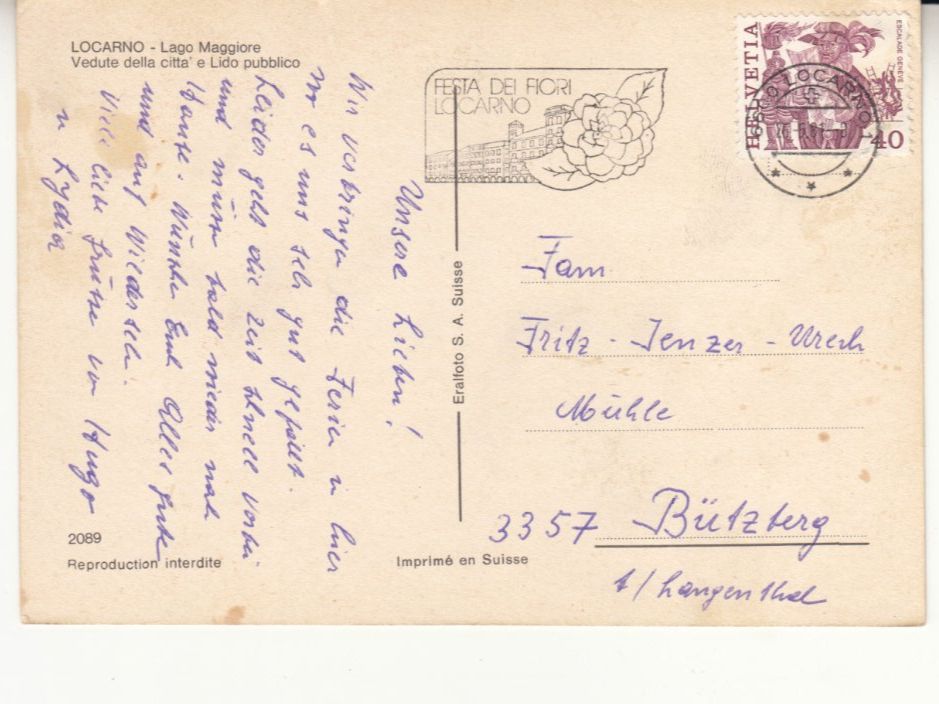 LOCARNO - Lago Maggiore
Vedute della citta' e Lido pubblico
Unsere Lieben!
Wir verbringen die Ferien in hier
wo es uns sehr gut gefällt.
Leider geht die Zeit schnell vorbei
und müssen bald wieder nach
Hause. Wünschen Euch Alles gute
und auf Wiedersehn.
Viele liebe Grüsse von Hugo
u Lydia
2089
Reproduction interdite
Eralfoto S. A. Suisse
Imprimé en Suisse
FESTA DEI FIORI
LOCARNO
HELVETIA
ESCALADE GENÈVE
40
LOCARNO
Fam
Fritz - Jenzer - Urech
Mühle
3357 Bützberg
b/ Langenthal